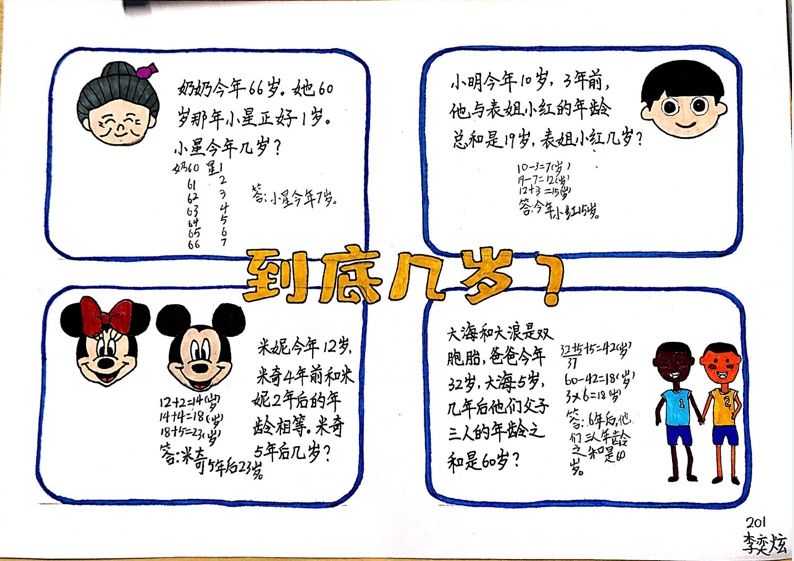 奶奶今年66岁。她60
岁那年小星正好1岁。
小星今年几岁？
奶60 星1
61 2
62 3
63 4
64 5
65 6
66 7
答：小星今年7岁。
小明今年10岁，3年前，
他与表姐小红的年龄
总和是19岁，表姐小红几岁？
10-3=7(岁)
19-7=12(岁)
12+3=15(岁)
答：今年小红15岁。
到底几岁？
米妮今年12岁，
米奇4年前和米
妮2年后的年
龄相等。米奇
5年后几岁？
12+2=14(岁)
14+4=18(岁)
18+5=23(岁)
答：米奇5年后23岁。
大海和大浪是双
胞胎，爸爸今年
32岁，大海5岁，
几年后他们父子
三人的年龄之
和是60岁？
32+5+5=42(岁)
37
60-42=18(岁)
3×6=18(岁)
答：6年后，他
们三人年龄
之和是60
岁。
1
2
201
李奕炫